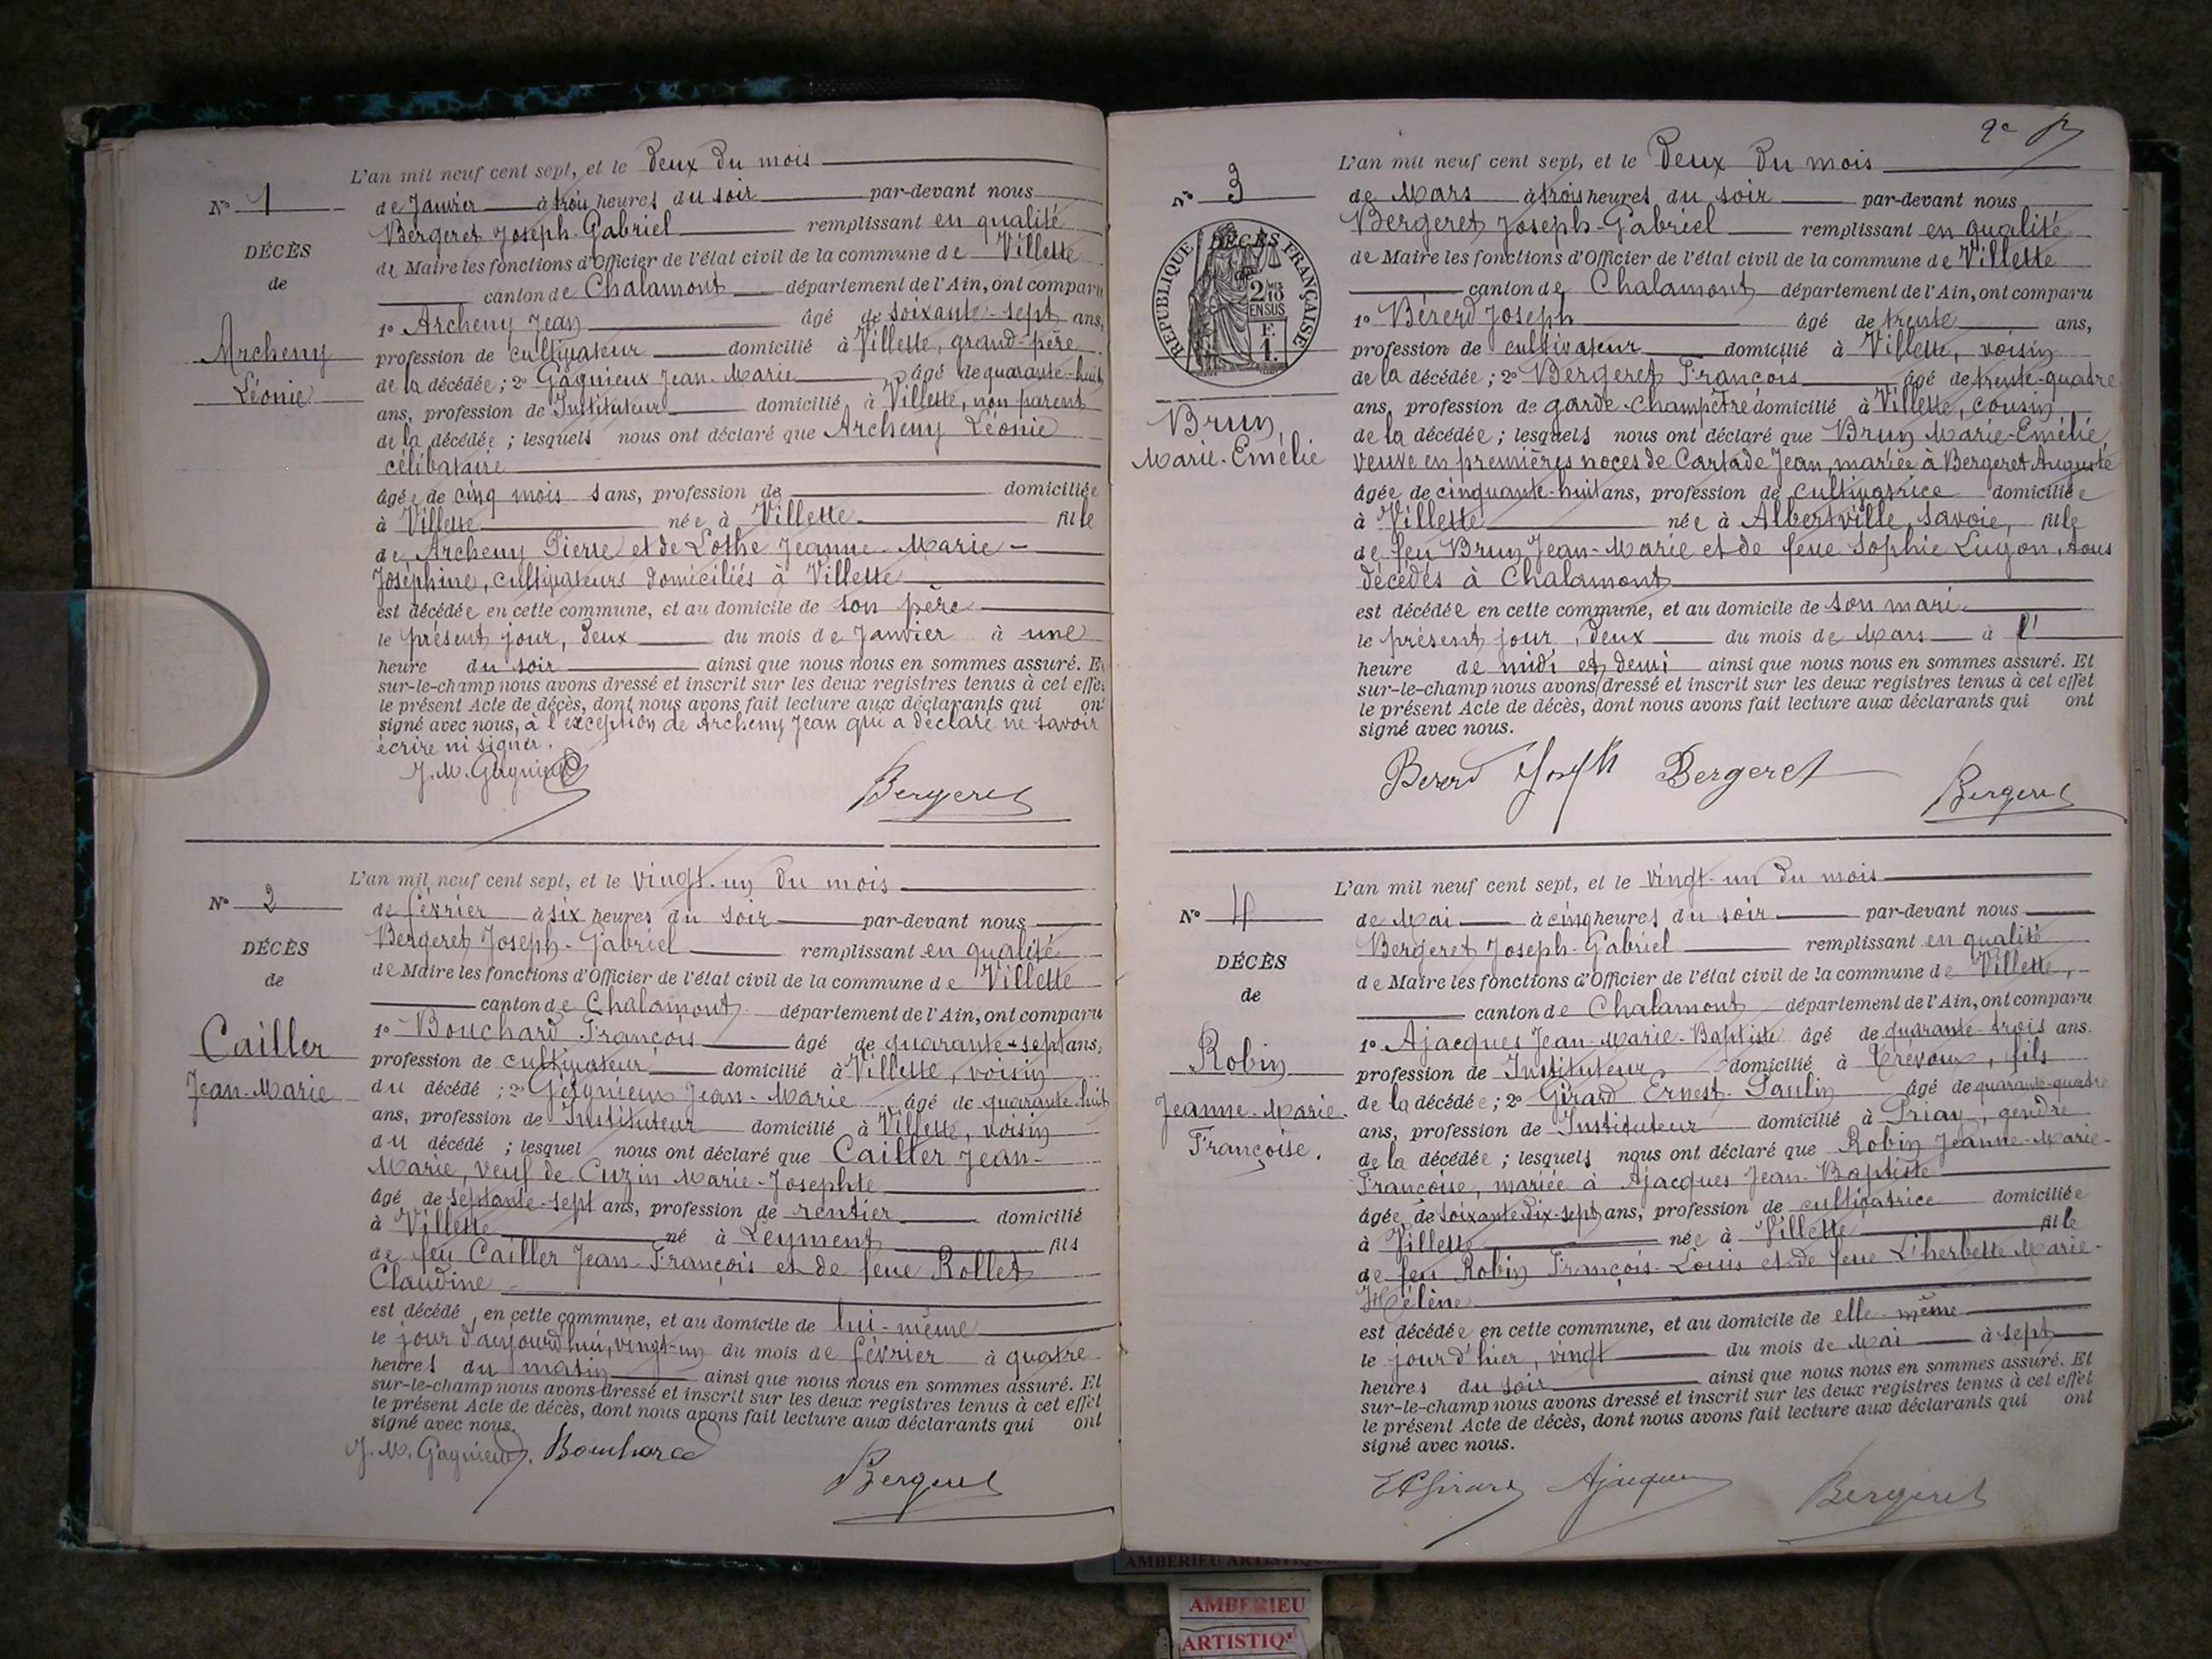 L'an mil neuf cent sept, et le Deux du mois
Nº 1
de Janvier à trois heures du soir par-devant nous
Bergeret Joseph-Gabriel remplissant en qualité
DÉCÈS
de Maire les fonctions d'Officier de l'état civil de la commune de Villette
de
canton de Chalamont département de l'Ain, ont comparu
1º Archeny Jean âgé de soixante-sept ans,
Archeny
profession de cultivateur domicilié à Villette, grand-père
Léonie
de la décédée ; 2º Gagnieux Jean-Marie âgé de quarante-huit
ans, profession de Instituteur domicilié à Villette, non parent
de la décédée ; lesquels nous ont déclaré que Archeny Léonie
célibataire
âgée de cinq mois sans, profession de domiciliée
à Villette née à Villette fille
de Archeny Pierre et de Lothe Jeanne-Marie-
Joséphine, cultivateurs domiciliés à Villette
est décédée en cette commune, et au domicile de son père
le présent jour, deux du mois de Janvier à une
heure du soir ainsi que nous nous en sommes assuré. E
sur-le-champ nous avons dressé et inscrit sur les deux registres tenus à cet effe
le présent Acte de décès, dont nous avons fait lecture aux déclarants qui on
signé avec nous, à l'exception de Archeny Jean qui a déclaré ne savoir
écrire ni signer.
J. M. Gagnieux
Bergeret
L'an mil neuf cent sept, et le vingt-un du mois
Nº 2
de février à six heures du soir par-devant nous
Bergeret Joseph-Gabriel remplissant en qualité
DÉCÈS
de Maire les fonctions d'Officier de l'état civil de la commune de Villette
de
canton de Chalamont département de l'Ain, ont comparu
1º Bouchard François âgé de quarante-sept ans,
Cailler
profession de cultivateur domicilié à Villette, voisin
Jean-Marie
du décédé ; 2º Gagnieux Jean-Marie âgé de quarante-huit
ans, profession de Instituteur domicilié à Villette, voisin
du décédé ; lesquel nous ont déclaré que Cailler Jean-
Marie, veuf de Cuzin Marie-Josephte
âgé de septante-sept ans, profession de rentier domicilié
à Villette né à Leyment fils
de feu Cailler Jean-François et de feue Rollet
Claudine
est décédé, en cette commune, et au domicile de lui-même
le jour d'aujourd'hui, vingt-un du mois de février à quatre
heures du matin ainsi que nous nous en sommes assuré. Et
sur-le-champ nous avons dressé et inscrit sur les deux registres tenus à cet effet
le présent Acte de décès, dont nous avons fait lecture aux déclarants qui ont
signé avec nous.
J. M. Gagnieux. Bouchard
Bergeret
2e
L'an mil neuf cent sept, et le Deux du mois
Nº 3
de Mars à trois heures du soir par-devant nous
Bergeret Joseph-Gabriel remplissant en qualité
RÉPUBLIQUE FRANÇAISE
DÉCÈS
de
2/10 EN SUS
F. 1.
de Maire les fonctions d'Officier de l'état civil de la commune de Villette
canton de Chalamont département de l'Ain, ont comparu
1º Bérerd Joseph âgé de trente ans,
profession de cultivateur domicilié à Villette, voisin
de la décédée ; 2º Bergeret François âgé de trente-quatre
ans, profession de garde-champêtre domicilié à Villette, cousin
Brun
Marie-Emélie
de la décédée ; lesquels nous ont déclaré que Brun Marie-Emélie
veuve en premières noces de Cartade Jean, mariée à Bergeret Auguste
âgée de cinquante-huit ans, profession de cultivatrice domiciliée
à Villette née à Albertville, Savoie, fille
de feu Brun Jean-Marie et de feue Sophie Luyon, tous
décédés à Chalamont
est décédée en cette commune, et au domicile de son mari
le présent jour, deux du mois de Mars à l'
heure de midi et demi ainsi que nous nous en sommes assuré. Et
sur-le-champ nous avons dressé et inscrit sur les deux registres tenus à cet effet
le présent Acte de décès, dont nous avons fait lecture aux déclarants qui ont
signé avec nous.
Bererd Joseph Bergeret
Bergeret
L'an mil neuf cent sept, et le vingt-un du mois
Nº 4
de Mai à cinq heures du soir par-devant nous
Bergeret Joseph-Gabriel remplissant en qualité
DÉCÈS
de Maire les fonctions d'Officier de l'état civil de la commune de Villette,
de
canton de Chalamont département de l'Ain, ont comparu
1º Ajacques Jean-Marie-Baptiste âgé de quarante-trois ans.
Robin
profession de Instituteur domicilié à Trévoux, fils
Jeanne-Marie-
de la décédée ; 2º Girard Ernest-Paulin âgé de quarante-quatre
ans, profession de Instituteur domicilié à Priay, gendre
Françoise.
de la décédée ; lesquels nous ont déclaré que Robin Jeanne-Marie-
Françoise, mariée à Ajacques Jean-Baptiste
âgée de soixante-dix-sept ans, profession de cultivatrice domiciliée
à Villette née à Villette fille
de feu Robin François-Louis et de feue L'herbette Marie-
Hélène
est décédée en cette commune, et au domicile de elle-même
le jour d'hier, vingt du mois de Mai à sept
heures du soir ainsi que nous nous en sommes assuré. Et
sur-le-champ nous avons dressé et inscrit sur les deux registres tenus à cet effet
le présent Acte de décès, dont nous avons fait lecture aux déclarants qui ont
signé avec nous.
EPGirard Ajacques Bergeret
AMBERIEU ARTISTIQUE
AMBERIEU
ARTISTIQ